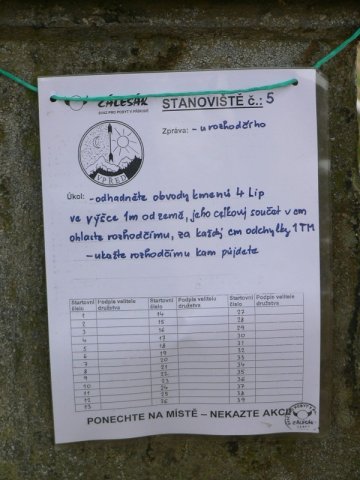 ZÁLESÁK
SVAZ PRO POBYT V PŘÍRODĚ
STANOVIŠTĚ č.: 5
Zpráva: - u rozhodčího
VPŘED
Úkol: - odhadněte obvody kmenů 4 lip
ve výšce 1m od země, jeho celkový součet v cm
ohlaste rozhodčímu, za každý cm odchylky 1 TM
- ukažte rozhodčímu kam půjdete
Startovní číslo Podpis velitele družstva Startovní číslo Podpis velitele družstva Startovní číslo Podpis velitele družstva
1 14 27
2 15 28
3 16 29
4 17 30
5 18 31
6 19 32
7 20 33
8 21 34
9 22 35
10 23 36
11 24 37
12 25 38
13 26 39
PONECHTE NA MÍSTĚ – NEKAZTE AKCI!
ZÁLESÁK